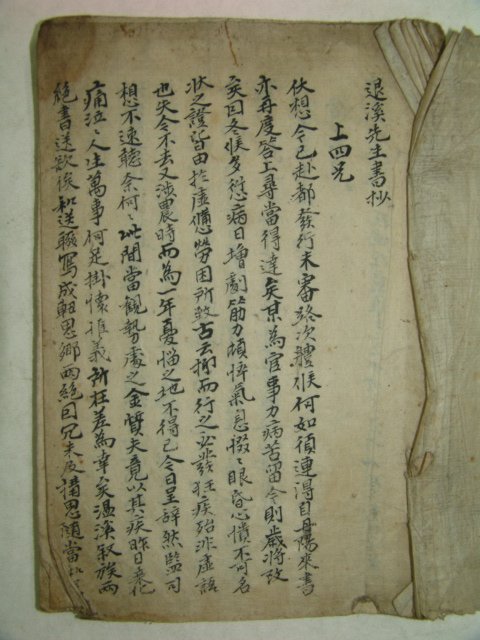 退溪先生書抄
上四兄
伏想令已赴都發行未審路次體候何如須連得自丹陽來書
亦再度答上尋當得達矣某為官事力病苦留今則歲將改
矣因冬候多愆病日增劇筋力頓悴氣息惙〻眼昏心憒不可名
狀之證皆由於虛憊勞困所致古云抑而行之必發狂疾殆非虛語
也失今不去又涉農時而為一年憂惱之地不得已今日呈辭然監司
想不速聽奈何〻〻此間當觀勢處之金質夫竟以其疾昨日喪化
痛泣〻人生萬事何足掛懷推義所在差為幸矣溫溪叙族兩
絕書送欲後和送輟寫成軸思鄉兩絕曰兄未及搆思隨當